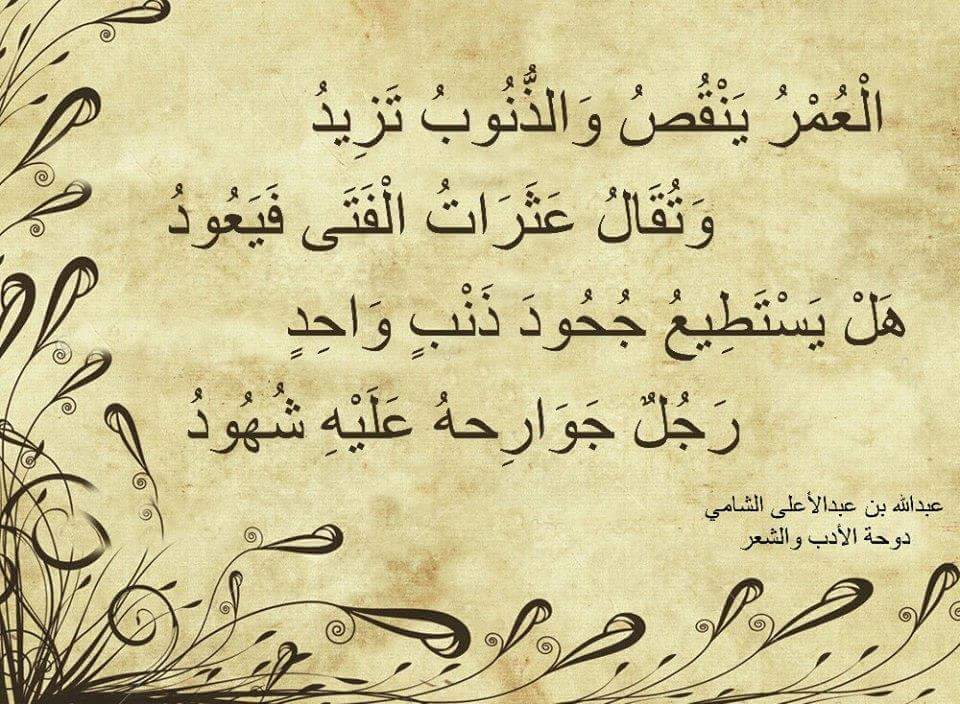 الْعُمْرُ يَنْقُصُ وَالذُّنُوبُ تَزِيدُ
وَتُقَالُ عَثَرَاتُ الْفَتَى فَيَعُودُ
هَلْ يَسْتَطِيعُ جُحُودَ ذَنْبٍ وَاحِدٍ
رَجُلٌ جَوَارِحهُ عَلَيْهِ شُهُودُ
عبدالله بن عبدالأعلى الشامي
دوحة الأدب والشعر